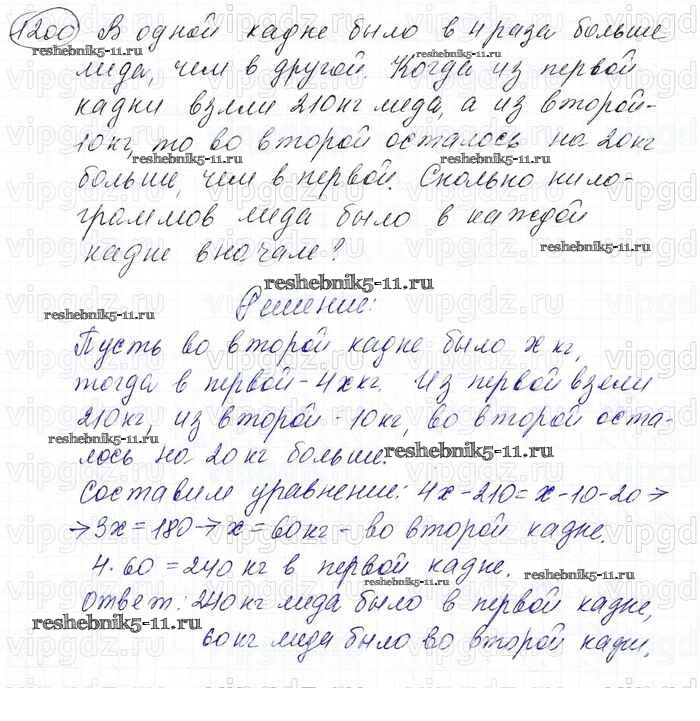 1200 В одной кадке было в 4 раза больше
меда, чем в другой. Когда из первой
кадки взяли 210 кг меда, а из второй -
10 кг, то во второй осталось на 20 кг
больше, чем в первой. Сколько кило-
граммов меда было в каждой
кадке вначале?
Решение:
Пусть во второй кадке было x кг,
тогда в первой - 4x кг. Из первой взяли
210 кг, из второй - 10 кг, во второй оста-
лось на 20 кг больше.
Составим уравнение: 4x - 210 = x - 10 - 20 →
→ 3x = 180 → x = 60 кг - во второй кадке.
4 · 60 = 240 кг в первой кадке.
Ответ: 240 кг меда было в первой кадке,
60 кг меда было во второй кадке.
reshebnik5-11.ru
vipgdz.ru